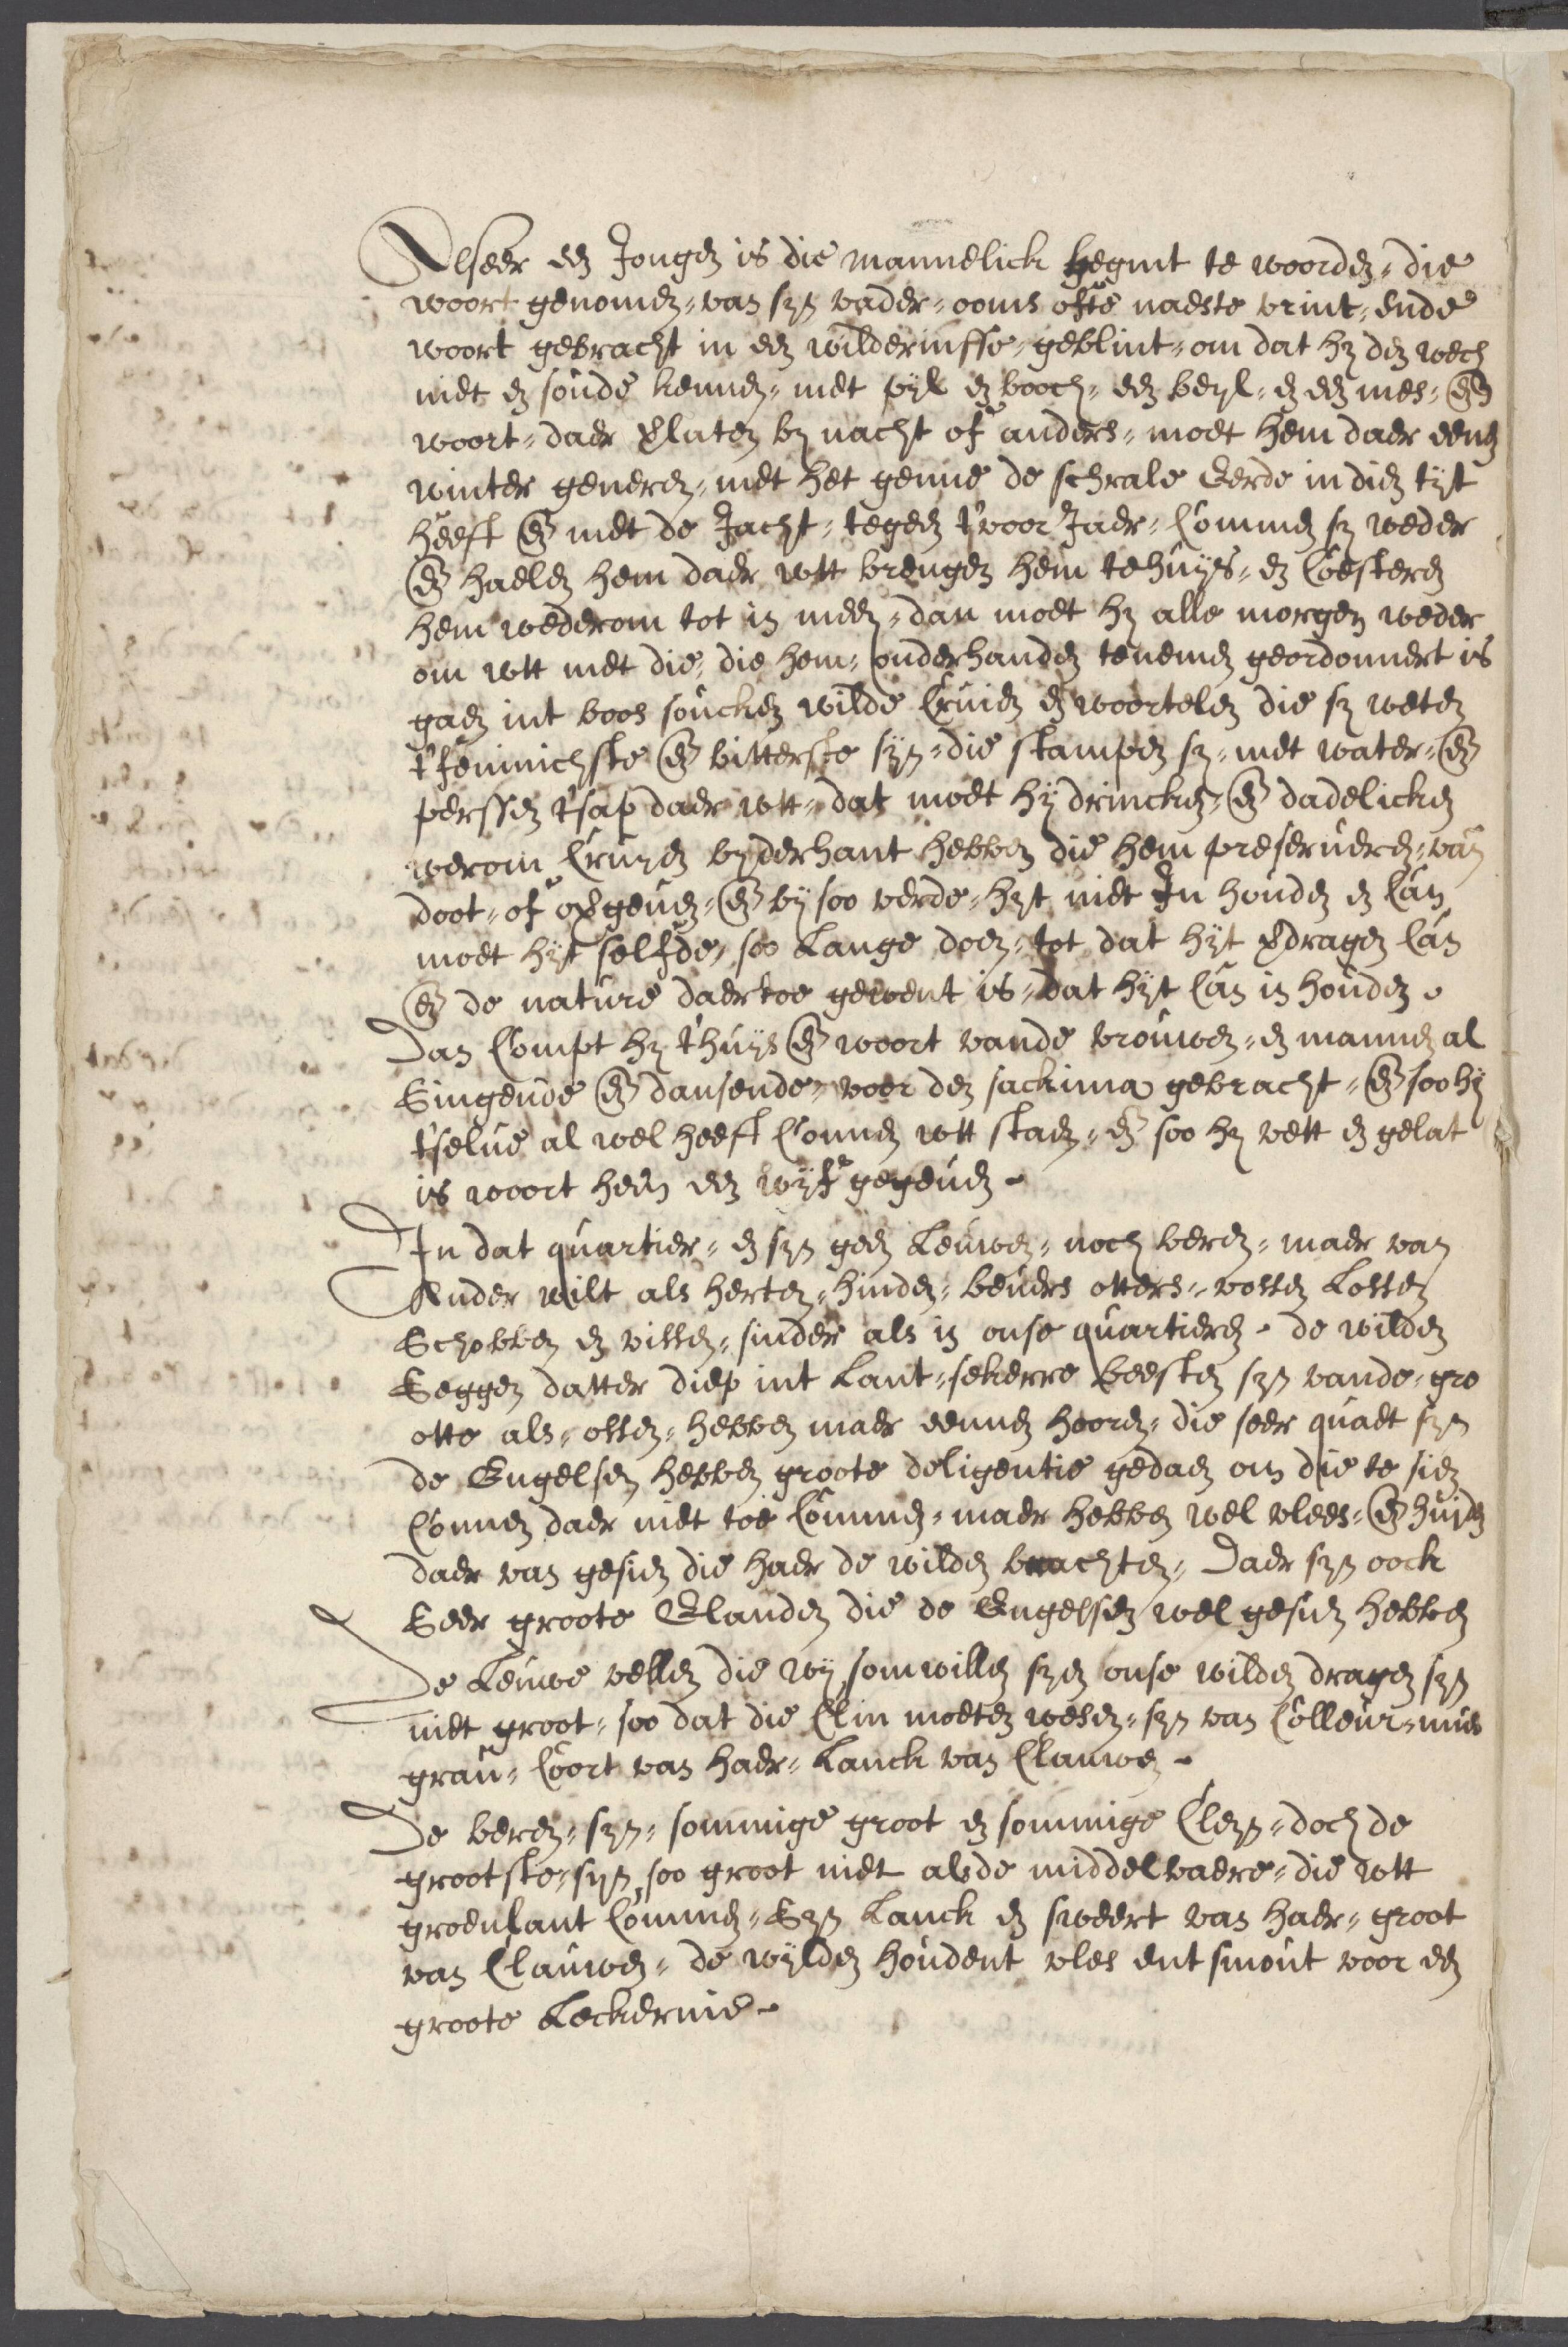 Alseer een Jongen is die mannelick begint te woorden, die
woort genomen, van syn vader, ooms ofte naeste vrint, ende
woort gebracht in een wildernisse, geblint, om dat hy den wech
niet en soude kennen, met pyl en booch, een beyl, en een mes, en
woort, daer verlaten by nacht of anders, moet hem daer eenen
winter generen, met het genne de schrale Eerde in dien tyt
heeft en met de Jacht, tegen t'voor Jaer, Commen sy weder
en haelen hem daer wtt brengen hem tehuys, en Coesteren
hem wederom tot in meey, dan moet hy alle morgen weder
om wtt met die, die hem, onderhanden tenemen geordonnert is
gaen int boos soucken wilde Cruien en woortelen die sy weten
t'feninichste en bitterste syn, die stampen sy, met water, en
perssen t'sap daer wtt, dat moet hy drincken, en dadelicken
werom Cruyen byderhant hebben die hem preserueren, van
doot, of vergeuen, en by soo verde, hyt niet In houden en Can
moet hyt selfde, soo Lange doen, tot dat hyt verdragen Can
en de nature daertoe gewent is, dat hyt Can in houden.
Dan Compt hy t'huys en woort vande vrouwen, en mannen al
Singende en dansende, voor den sackima gebracht, en soo hy
t'selue al wel heeft Connen wtt staen, en soo hy vett en gelat
is woort hem een wyf gegeuen.
In dat quartier, en syn geen Leuwen, noch beren, maer van
Ander wilt als herten, hinden, beuers otters, vossen Lossen
Schobben en vissen, sinder als in onse quartieren. de wilden
Seggen datter diep int Lant, sekerre beesten syn vande, gro
otte als, ossen, hebben maer eennen hooren, die seer quaet syn
de Engelsen hebben groote deligentie gedaen om die te sien
Connen daer niet toe Commen, maer hebben wel vlees, en huyden
daer van gesien die haer de wilden brachten, Daer syn oock
Seer groote Elanden die de Engelsen wel gesien hebben
De Leuwe vellen die wy somwillen syen onse wilden dragen syn
niet groot, soo dat die Clin moeten wesen, syn van Colleur, muis
grau, Coort van haer, Lanck van Clauwen.
De beren, syn, sommige groot en sommige Cleyn, doch de
grootste, syn, soo groot niet als de middelbaere, die wtt
groenlant Commen, Syn Lanck en sweert van haer, groot
van Clauwen, de wylden houdent vles ent smout voor een
groote Leckernie.